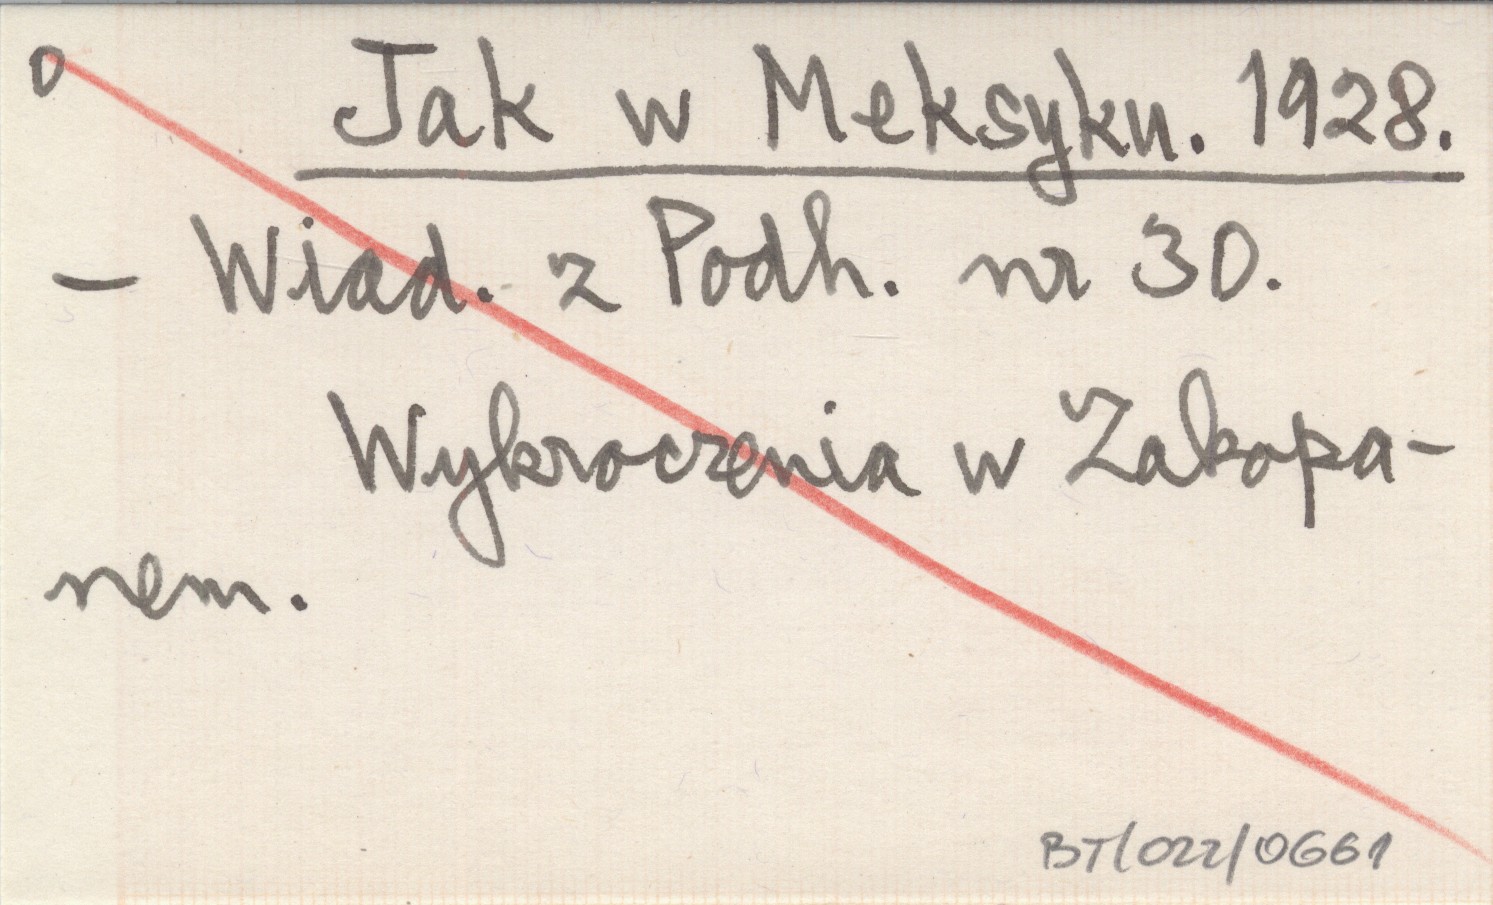 o Jak w Meksyku. 1928.
– Wiad. z Podh. nr 30.
Wykroczenia w Zakopa-
nem.
BT/022/0661